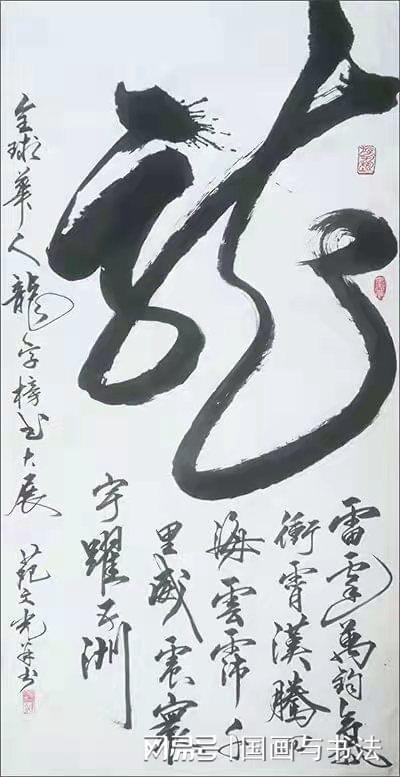 龍
雷霆萬鈞氣
衝霄漢騰四
海雲霈千
里威震寰
宇躍五洲
全球華人龍字榜书大展
范文光并书
网易号 | 国画与书法